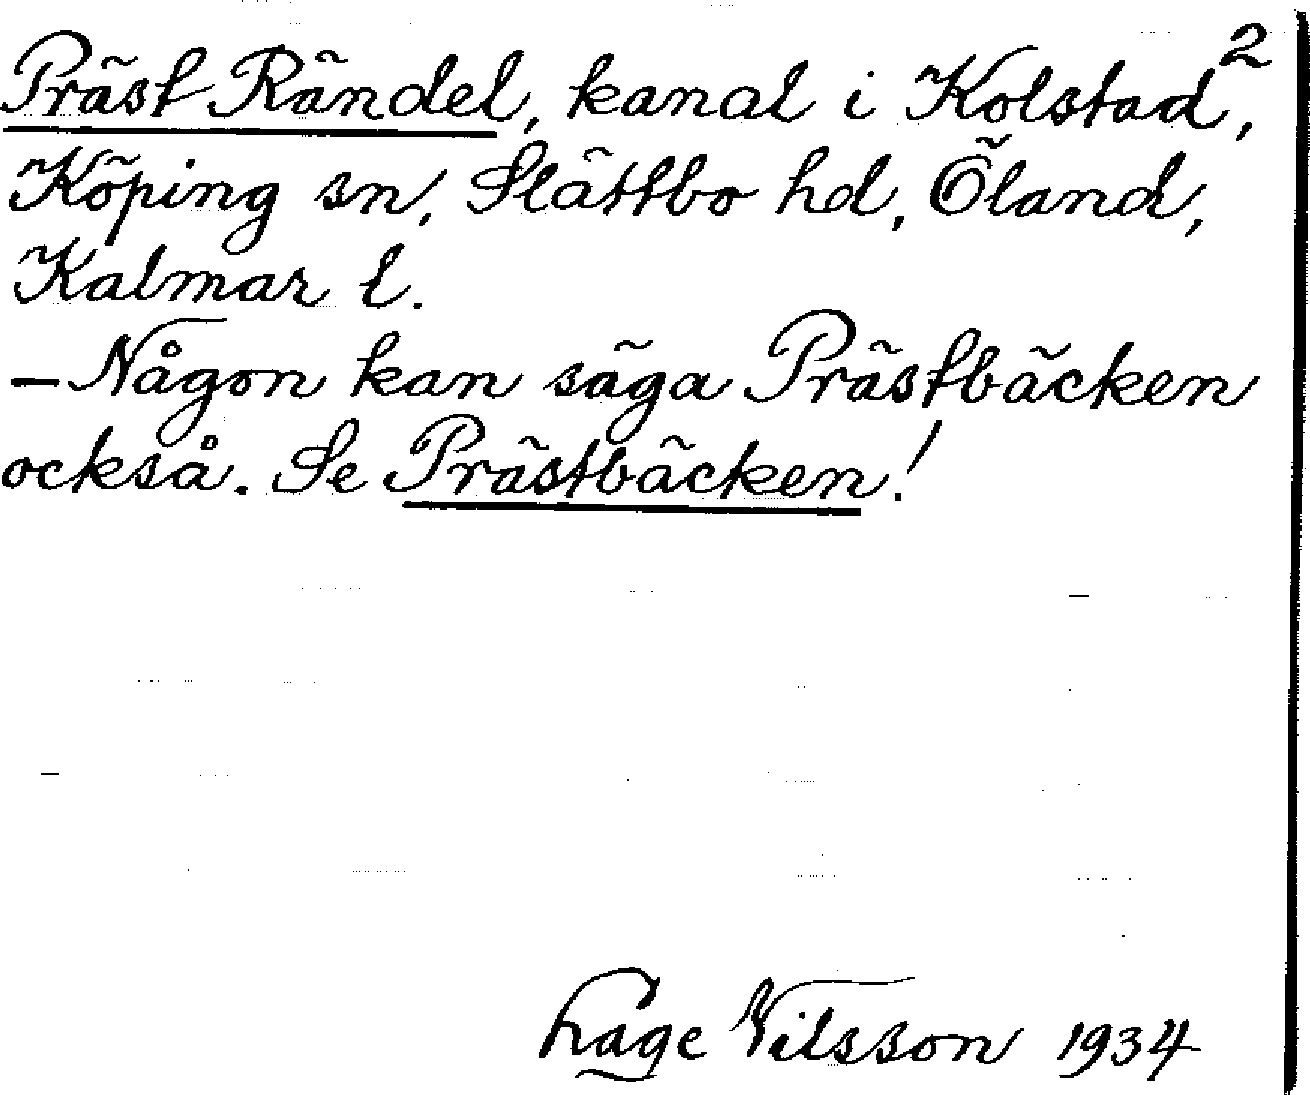 Präst Rändel, kanal i Kolstad²,
Köping sn, Slättbo hd, Öland,
Kalmar l.
– Någon kan säga Prästbäcken
också. Se Prästbäcken!
Lage Nilsson 1934